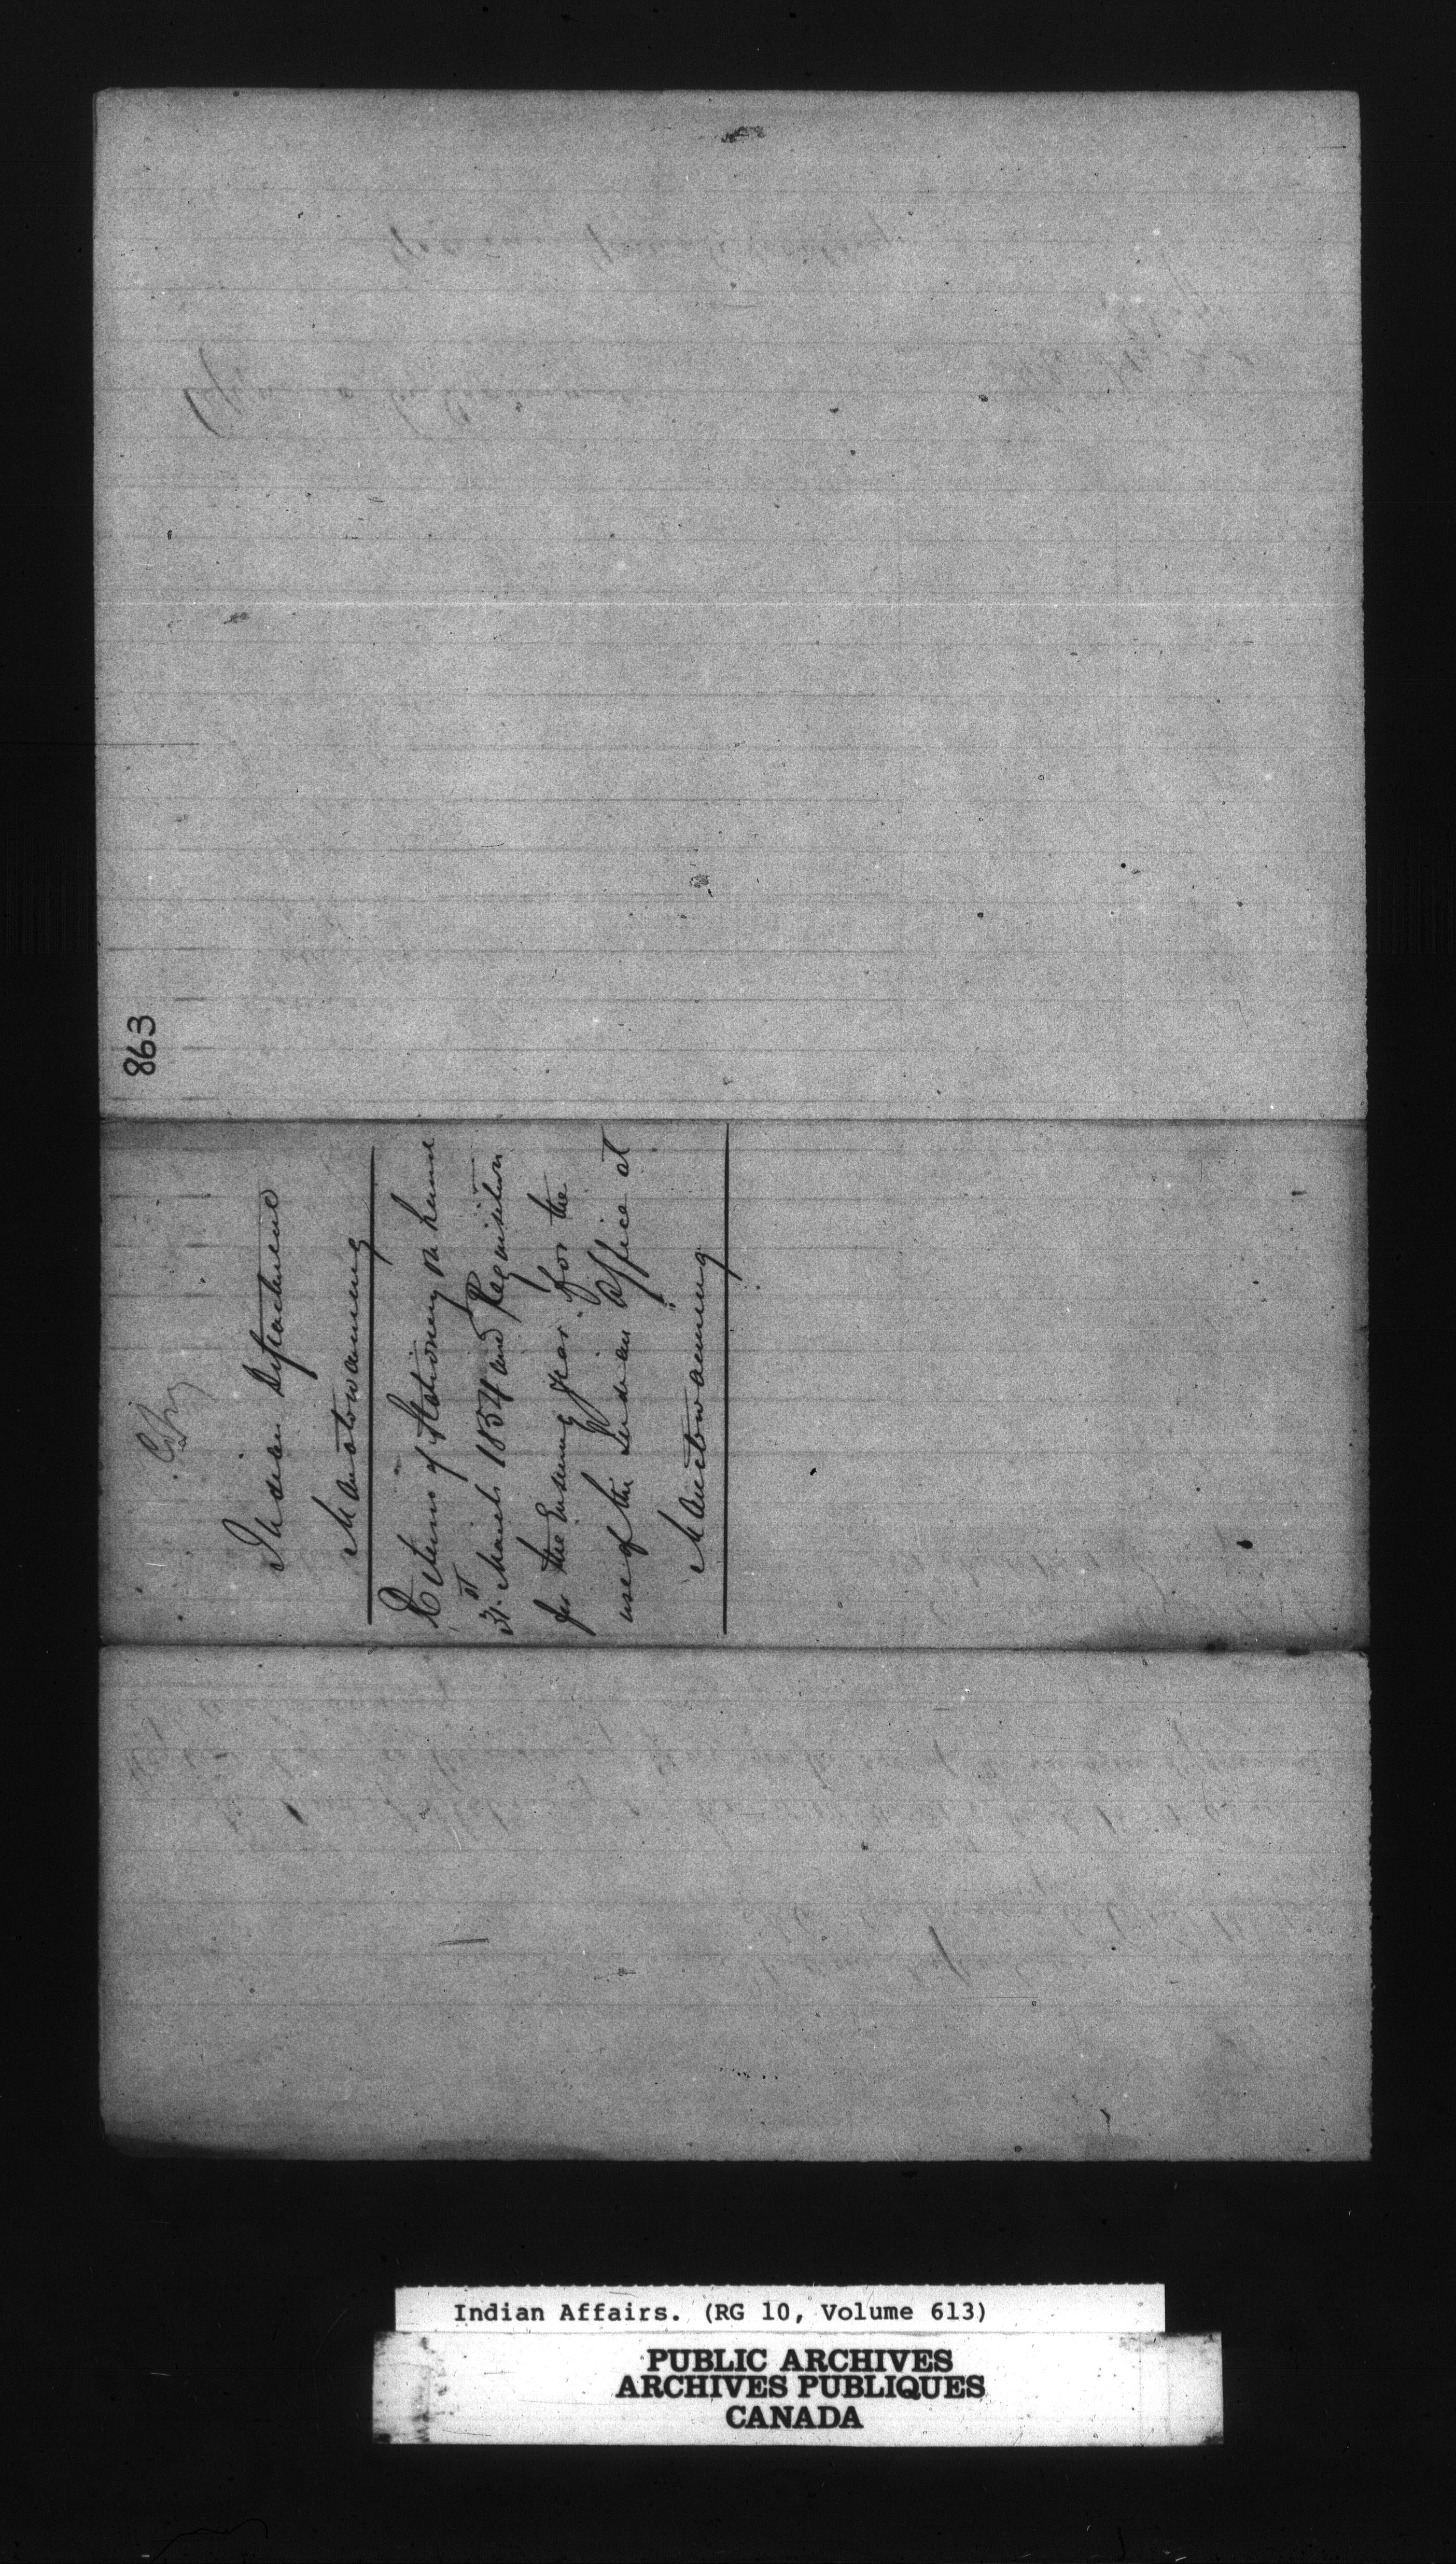 863
Copy
Indian Department
Manatowaning
Return of Stationery on hand
31st March 1854 and Requisition
for the Ensuing year for the
use of the Indian Office at
Manitowaning
Indian Affairs. (RG 10, Volume 613)
PUBLIC ARCHIVES
ARCHIVES PUBLIQUES
CANADA